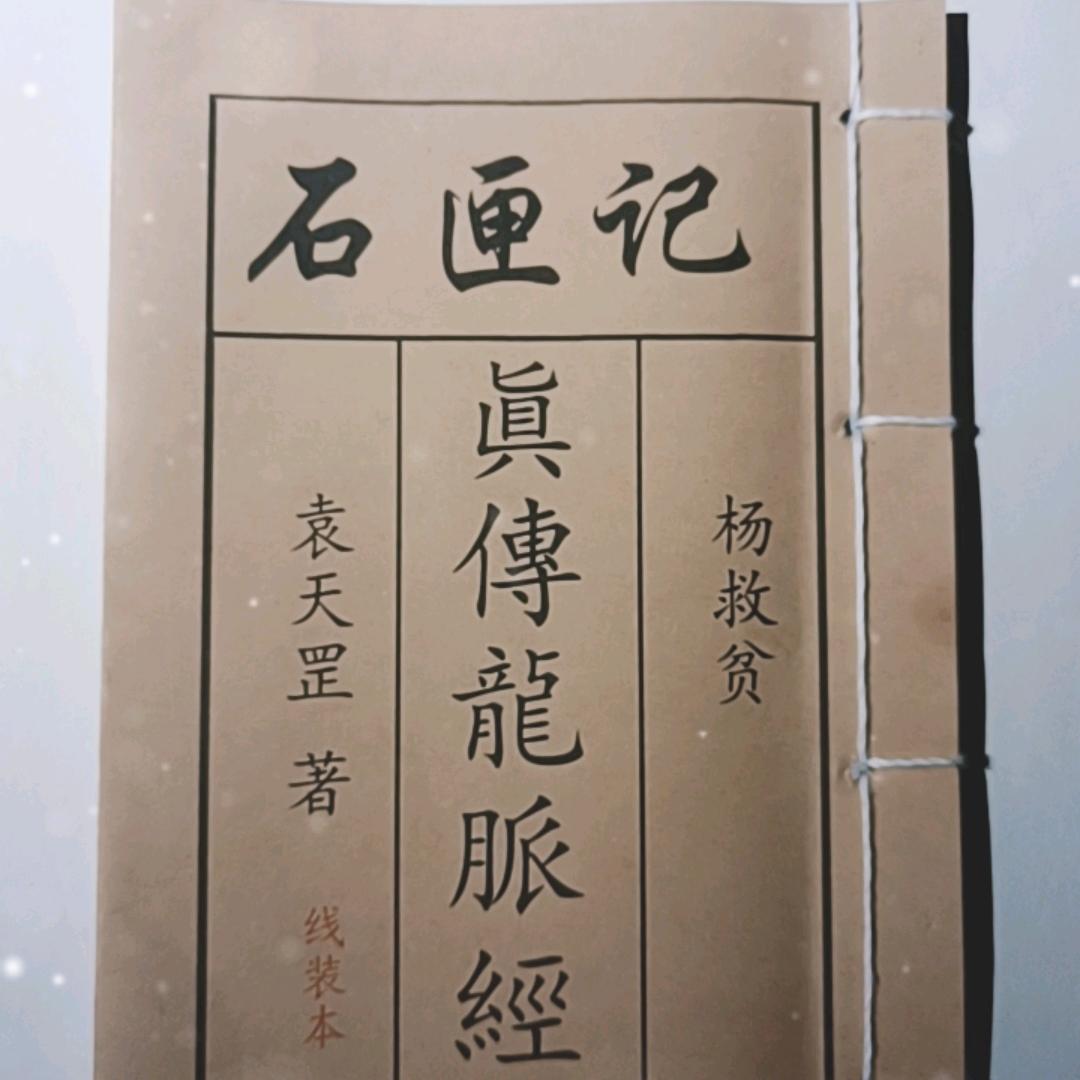 石匣记
杨救贫
眞傳龍脈經
袁天罡 著
线装本